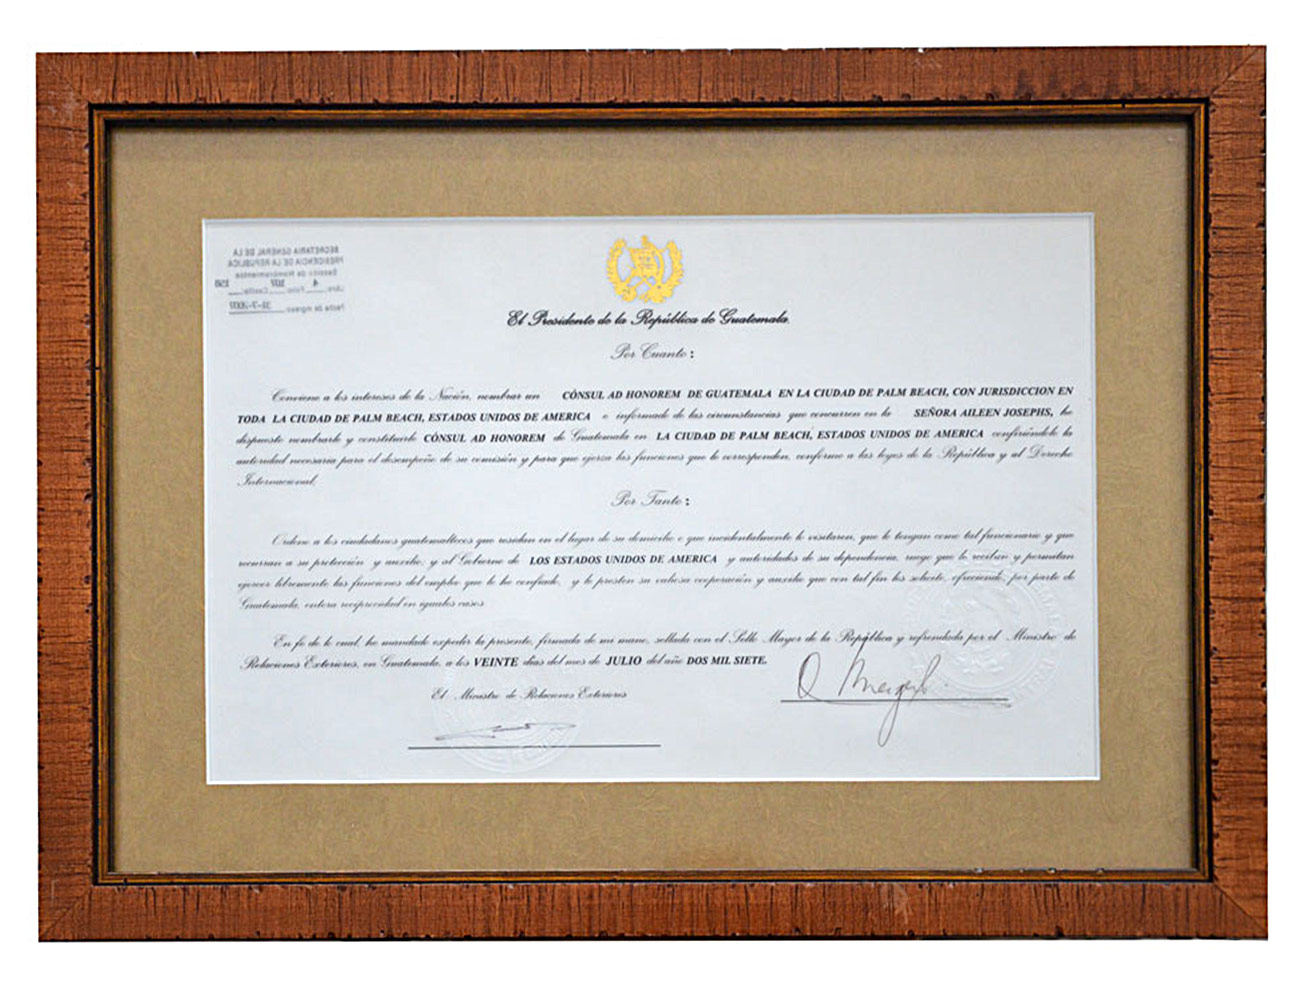 SECRETARIA GENERAL DE LA
PRESIDENCIA DE LA REPUBLICA
Libro 4 Folio 107 Casilla 158
Fecha de ingreso 31-7-2007
El Presidente de la República de Guatemala
Por Cuanto:
Conviene a los intereses de la Nación, nombrar un CÓNSUL AD HONOREM DE GUATEMALA EN LA CIUDAD DE PALM BEACH, CON JURISDICCION EN
TODA LA CIUDAD DE PALM BEACH, ESTADOS UNIDOS DE AMERICA e informado de las circunstancias que concurren en la SEÑORA AILEEN JOSEPHS, he
dispuesto nombrarle y constituirle CÓNSUL AD HONOREM de Guatemala en LA CIUDAD DE PALM BEACH, ESTADOS UNIDOS DE AMERICA confiriéndole la
autoridad necesaria para el desempeño de su comisión y para que ejerza las funciones que le corresponden, conforme a las leyes de la República y al Derecho
Internacional.
Por Tanto:
Ordeno a los ciudadanos guatemaltecos que residan en el lugar de su domicilio o que incidentalmente lo visitaren, que le tengan como tal funcionario y que
recurran a su protección y auxilio, y al Gobierno de LOS ESTADOS UNIDOS DE AMERICA y autoridades de su dependencia, ruego que le reciban y permitan
ejercer libremente las funciones del empleo que le he confiado, y le presten su valiosa cooperación y auxilio que con tal fin les solicite, ofreciendo, por parte de
Guatemala, entera reciprocidad en iguales casos.
En fe de lo cual, he mandado expedir la presente, firmada de mi mano, sellada con el Sello Mayor de la República y refrendada por el Ministro de
Relaciones Exteriores, en Guatemala, a los VEINTE días del mes de JULIO del año DOS MIL SIETE.
El Ministro de Relaciones Exteriores